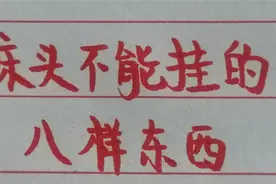 床头不能挂的
八样东西